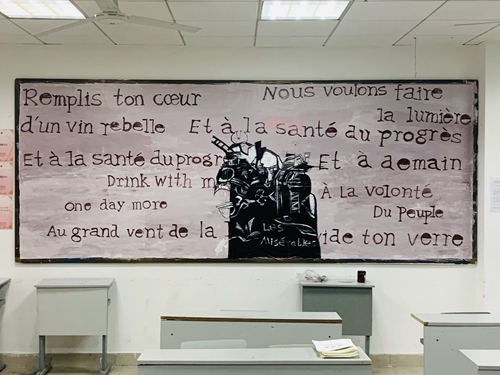 Remplis ton cœur
Nous voulons faire
la lumière
d'un vin rebelle
Et à la santé du progrès
Et à la santé du progr
Et à demain
Drink with m
À la volonté
one day more
Du peuple
Au grand vent de la
vide ton verre
Les
Misérables